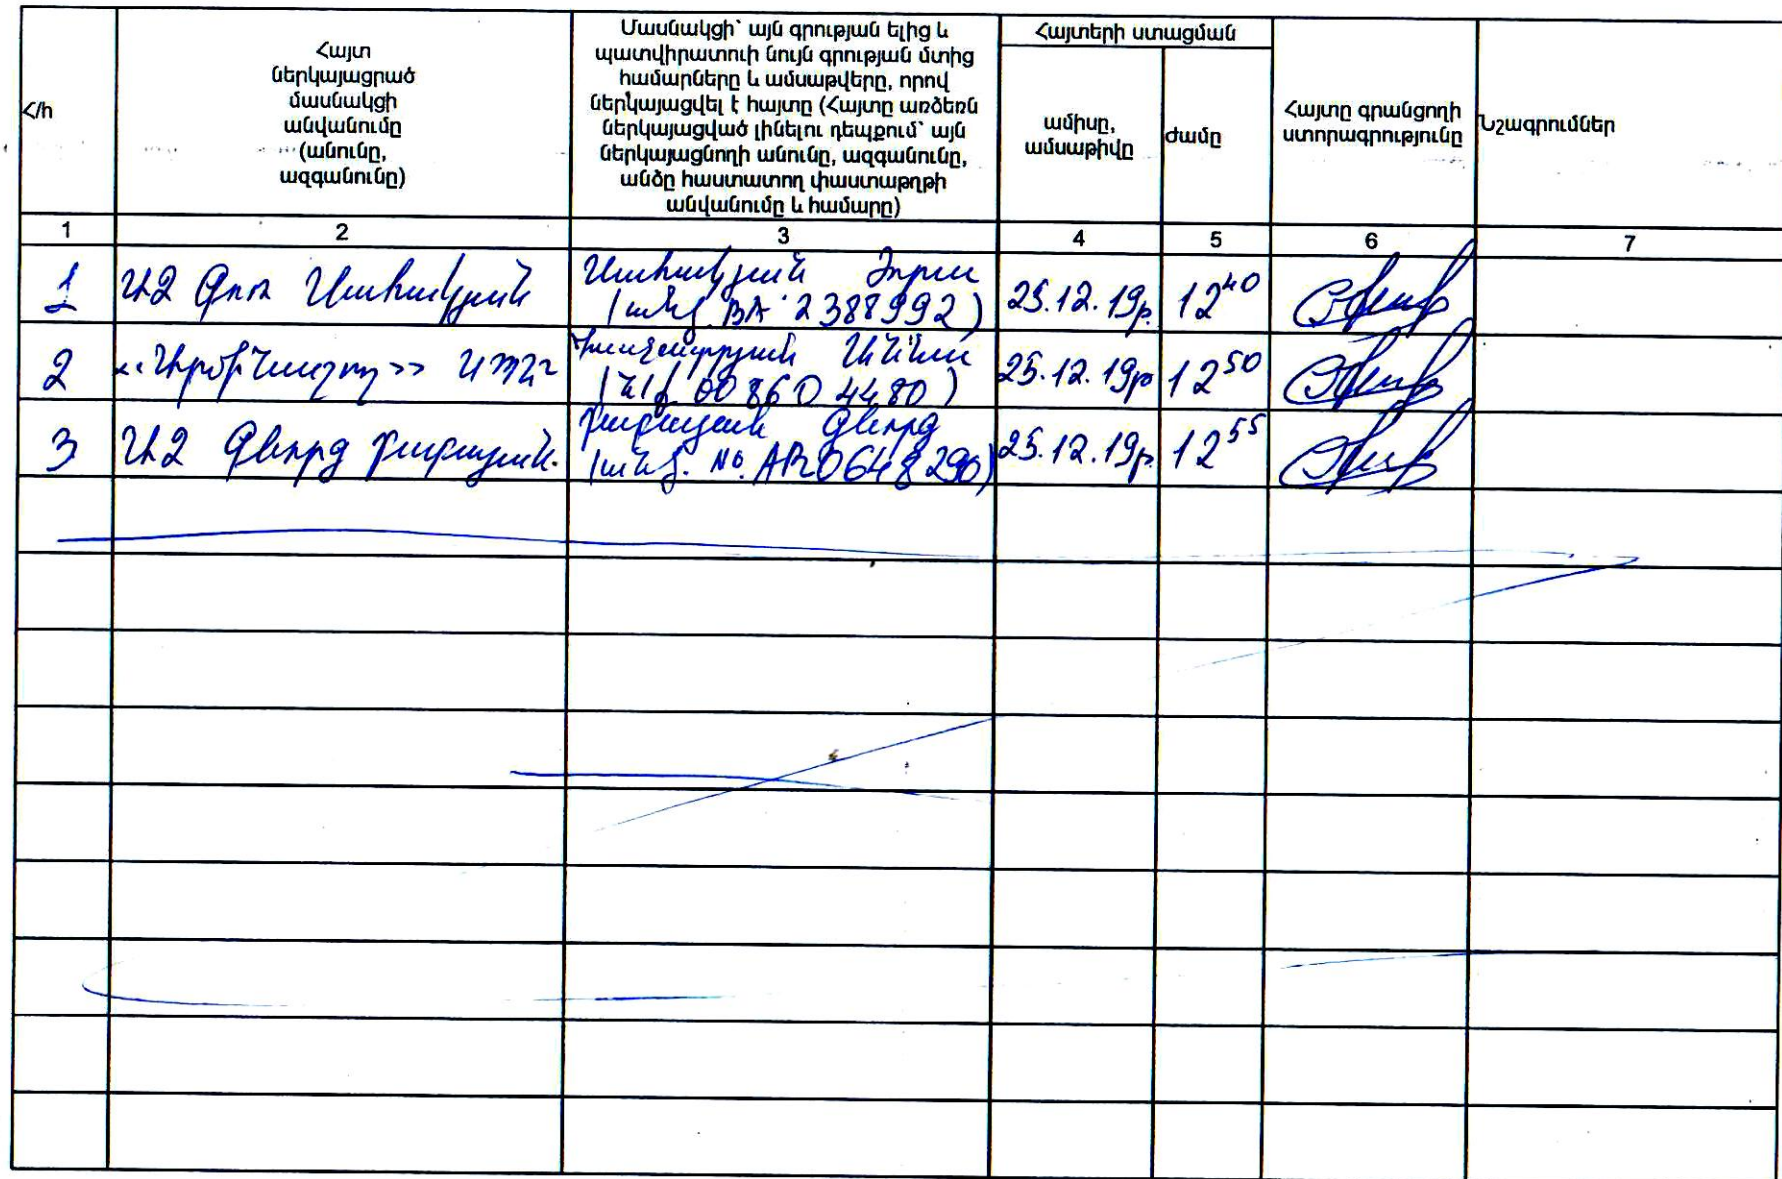 Հ/հ
Հայտ
ներկայացրած
մասնակցի
անվանումը
(անունը,
ազգանունը)
Մասնակցի՝ այն գրության ելից և
պատվիրատուի նույն գրության մտից
համարները և ամսաթվերը, որով
ներկայացվել է հայտը (Հայտը առձեռն
ներկայացված լինելու դեպքում՝ այն
ներկայացնողի անունը, ազգանունը,
անձը հաստատող փաստաթղթի
անվանումը և համարը)
Հայտերի ստացման
ամիսը,
ամսաթիվը
ժամը
Հայտը գրանցողի
ստորագրությունը
Նշագրումներ
1 2 3 4 5 6 7
1 ԱՁ Գոռ Սահակյան Սահակյան 25.12.19թ. 12⁴⁰
BA 2388992)
2 ՍՊԸ Խաչատրյան Աննա 25.12.19թ 12⁵⁰
008604480)
3 ԱՁ Գևորգ Բաբայան. Բաբայան Գևորգ 25.12.19թ. 12⁵⁵
(անձ. No. AR0648290)